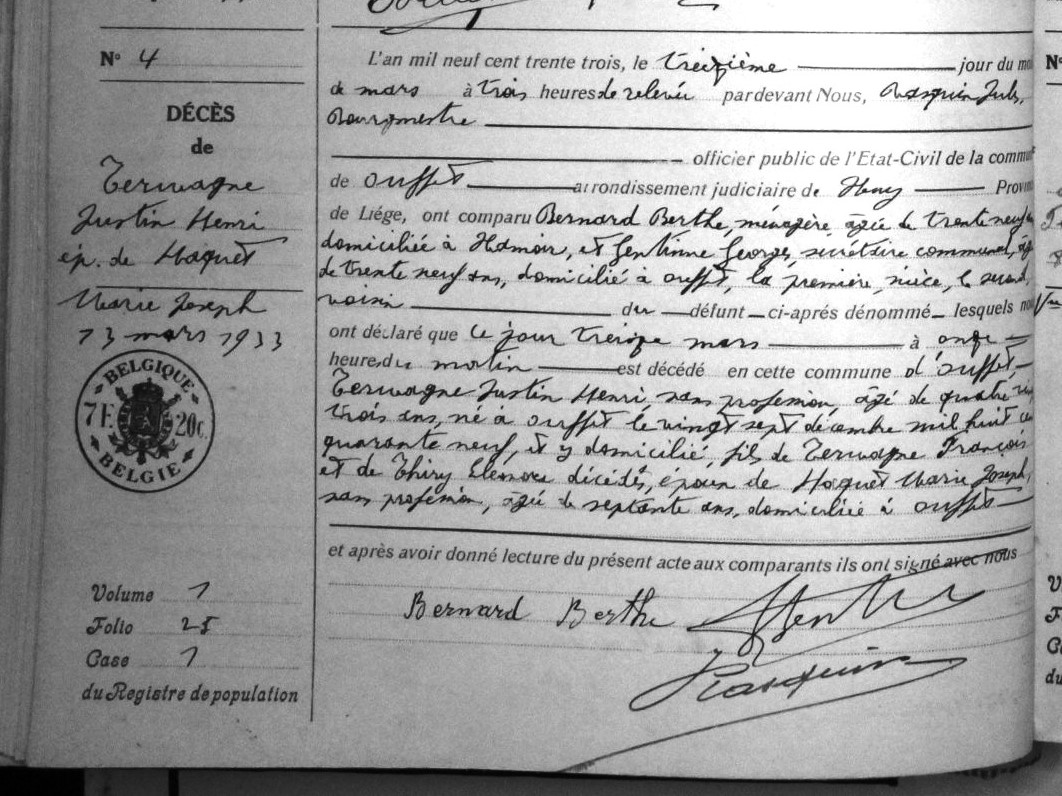 N° 4
DÉCÈS
de
Terwagne
Justin Henri
ép. de Haquet
Marie Joseph
13 mars 1933
BELGIQUE
7 F. 20 c.
BELGIE
Volume 1
Folio 25
Case 1
du Registre de population
L'an mil neuf cent trente trois, le treizième jour du
de mars à trois heures de relevée pardevant Nous,
Bourgmestre
officier public de l'Etat-Civil de la
de Ouffet arrondissement judiciaire de Huy
de Liége, ont comparu Bernard Berthe, ménagère, âgée de trente neuf
domiciliée à Hamoir, et Gentinne George, secrétaire communal,
de trente neuf ans, domicilié à Ouffet, la première, nièce, le second,
voisin du défunt ci-après dénommé lesquels
ont déclaré que ce jour treize mars à onze
heures du matin est décédé en cette commune d'Ouffet,
Terwagne Justin Henri, sans profession, âgé de quatre
trois ans, né à Ouffet le vingt sept décembre mil huit
quarante neuf, et y domicilié, fils de Terwagne François
et de Thiry Eléonore décédés, époux de Haquet Marie Joseph,
sans profession, âgée de septante ans, domiciliée à Ouffet
et après avoir donné lecture du présent acte aux comparants ils ont signé avec nous
Bernard Berthe